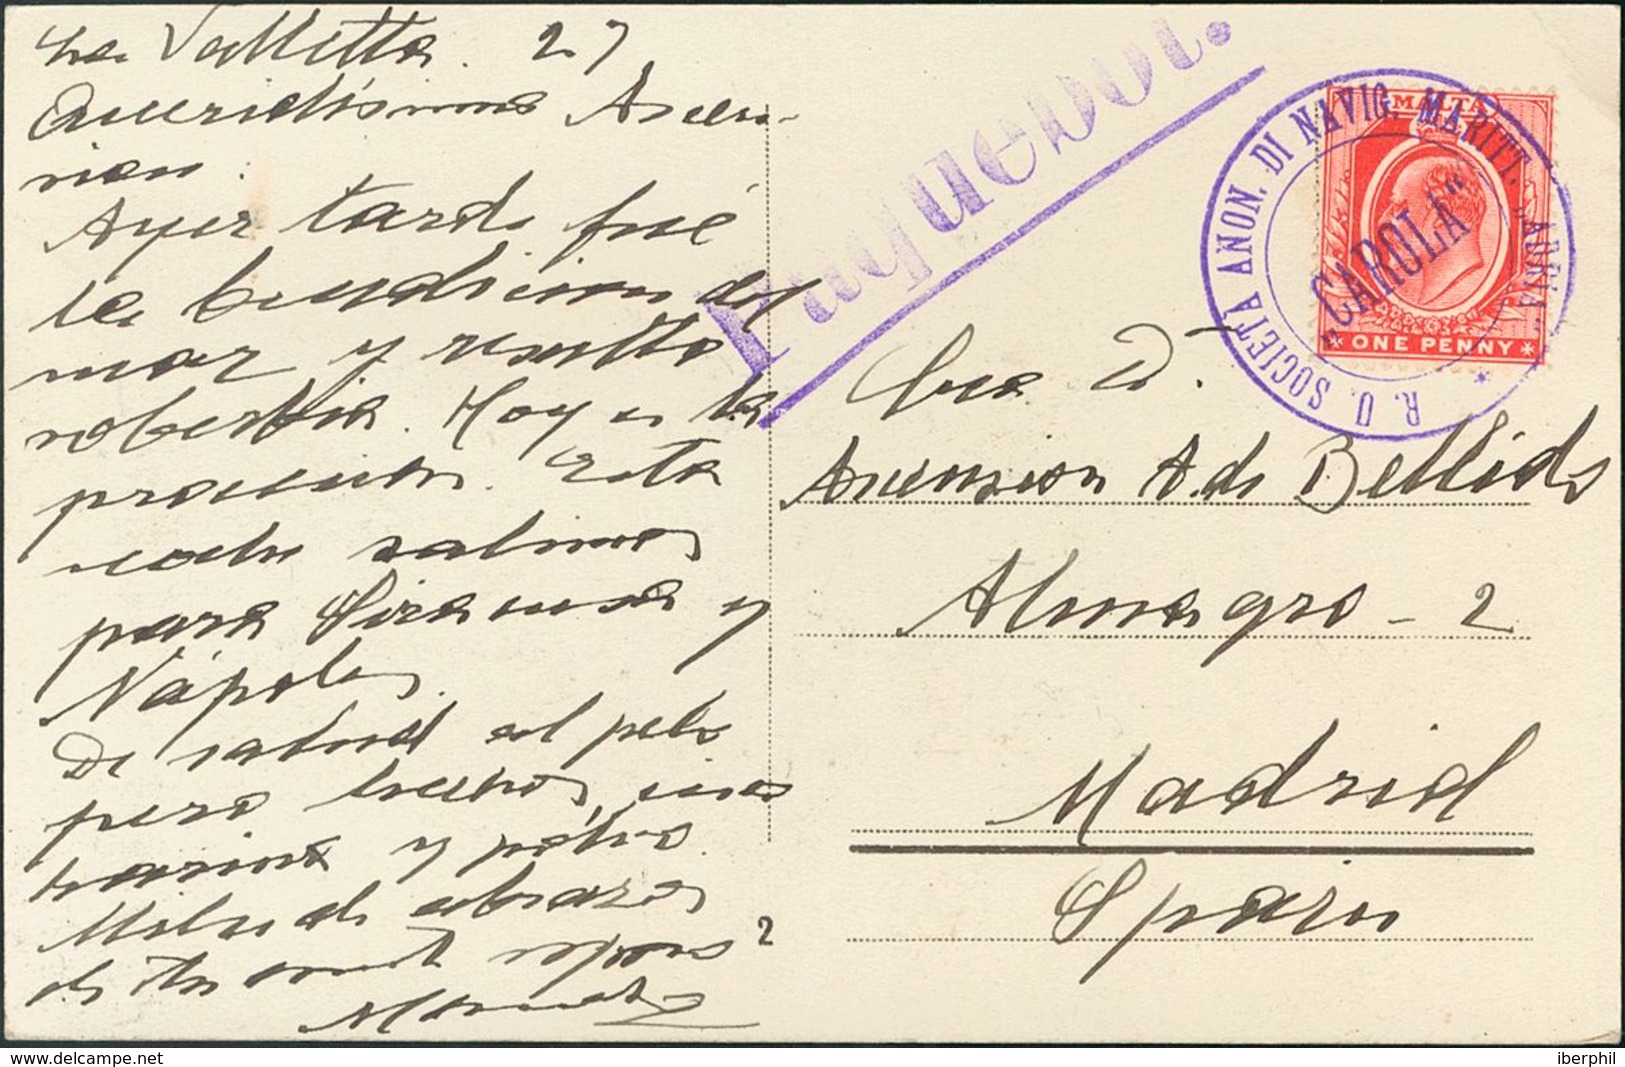 La Valletta. 27
Queridisima Ascen-
sion:
Ayer tarde fué
la bendicion del
mar y resultó
soberbia. Hoy es la
procesion. Esta
noche salimos
para Siracusa y
Nápoles.
De salud al pelo
pero hechos unos
y
Miles de abrazos
de tu
Paquebot.
R. U. SOCIETÀ ANON. DI NAVIG. MARITT. „ADRIA"
„CAROLA"
MALTA
ONE PENNY
Sra D.ª
Ascension A. de Bellido
Almagro - 2
Madrid
Spain
2
delcampe.net
iberphil